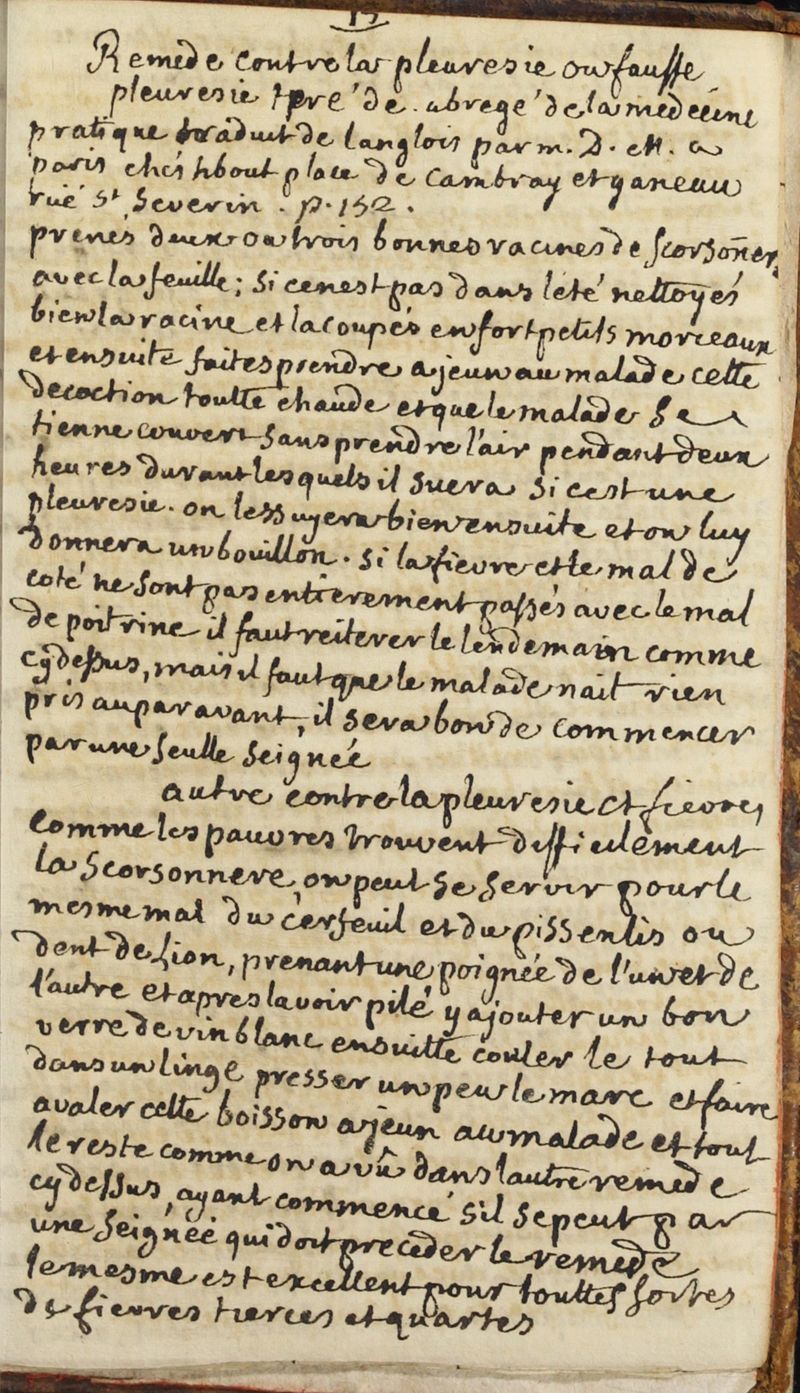 Remede contre la pleuresie ou fausse
pleuresie tiré de abregé de la medecine
pratique traduit de langlois par m. D. M. a
paris chés hbout place de Cambray et ganeau
ruë St. Severin . p. 152 .
prenés deux ou trois bonnes racines de scorsoner
avec la feuille ; si ce nest pas dans leté nettoyés
bien la racine et la coupés en fort petits morceaux
et ensuite faites prendre a jeun au malade cette
decoction toutte chaude et que le malade se
tienne couvert sans prendre l'air pendant deux
heures durant lesquels il suera si cest une
pleuresie . on lessuyera bien ensuite et on luy
donnera un bouillon . si la fievre et le mal de
coté ne sont pas entierement passés avec le mal
de poitrine il faut reiterer le lendemain comme
cy dessus, mais il faut que le malade nait rien
pris auparavant, il sera bon de commencer
par une seulle seignée
autre contre la pleuresie et fievres
Comme les pauvres trouvent difficilement
la scorsonnere on peut se servir pour le
mesme mal du cerfeuil et du pissenlis ou
dent de lion, prenant une poignée de l'un et de
l'autre et apres lavoir pilé y ajouter un bon
verre de vin blanc ensuitte couler le tout
dans un linge presser un peu le marc et faire
avaler cette boisson a jeun au malade et tout
le reste comme on a vû dans lautre remede
cy dessus, ayant commencé s'il se peut par
une seignée qui doit preceder le remede
le mesme est excellent pour touttes sortes
de fievres tierces et quartes